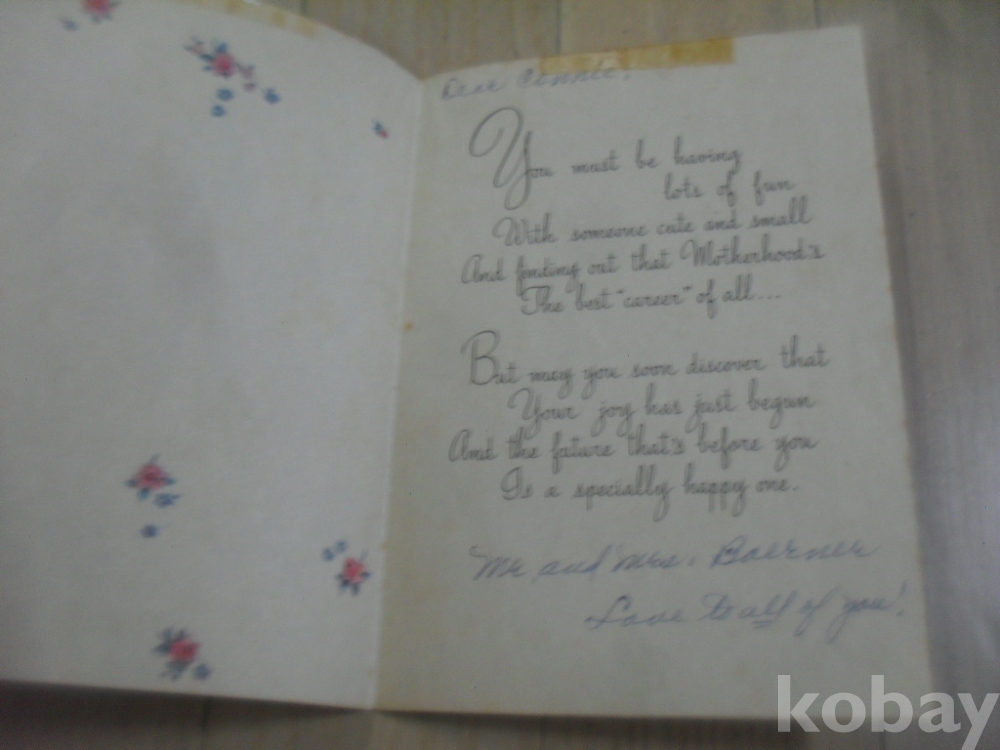 Dear Connie,
You must be having
lots of fun
With someone cute and small
And finding out that Motherhood's
The best "career" of all...
But may you soon discover that
Your joy has just begun
And the future that's before you
Is a specially happy one.
Mr and Mrs. Boerner
Love to all of you!
kobay